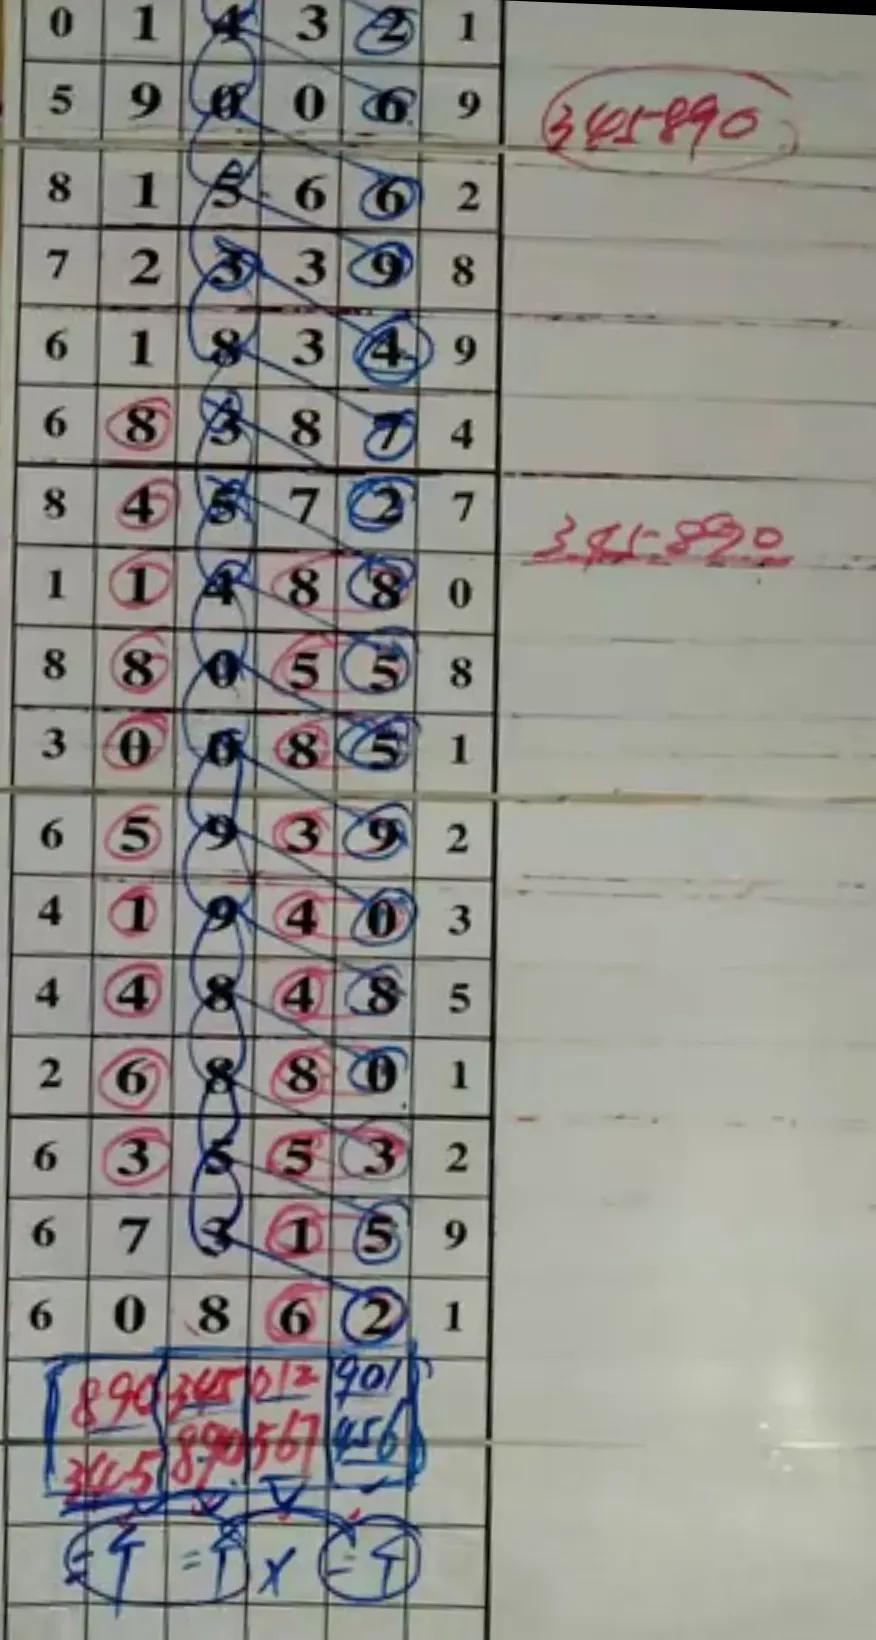 0 1 4 3 2 1
5 9 0 0 6 9
345-890
8 1 5 6 6 2
7 2 3 3 9 8
6 1 8 3 4 9
6 8 3 8 7 4
8 4 5 7 2 7
345-890
1 1 4 8 8 0
8 8 0 5 5 8
3 0 6 8 5 1
6 5 9 3 9 2
4 1 9 4 0 3
4 4 8 4 8 5
2 6 8 8 0 1
6 3 5 5 3 2
6 7 3 1 5 9
6 0 8 6 2 1
890 345 012 901
345 890 567 456